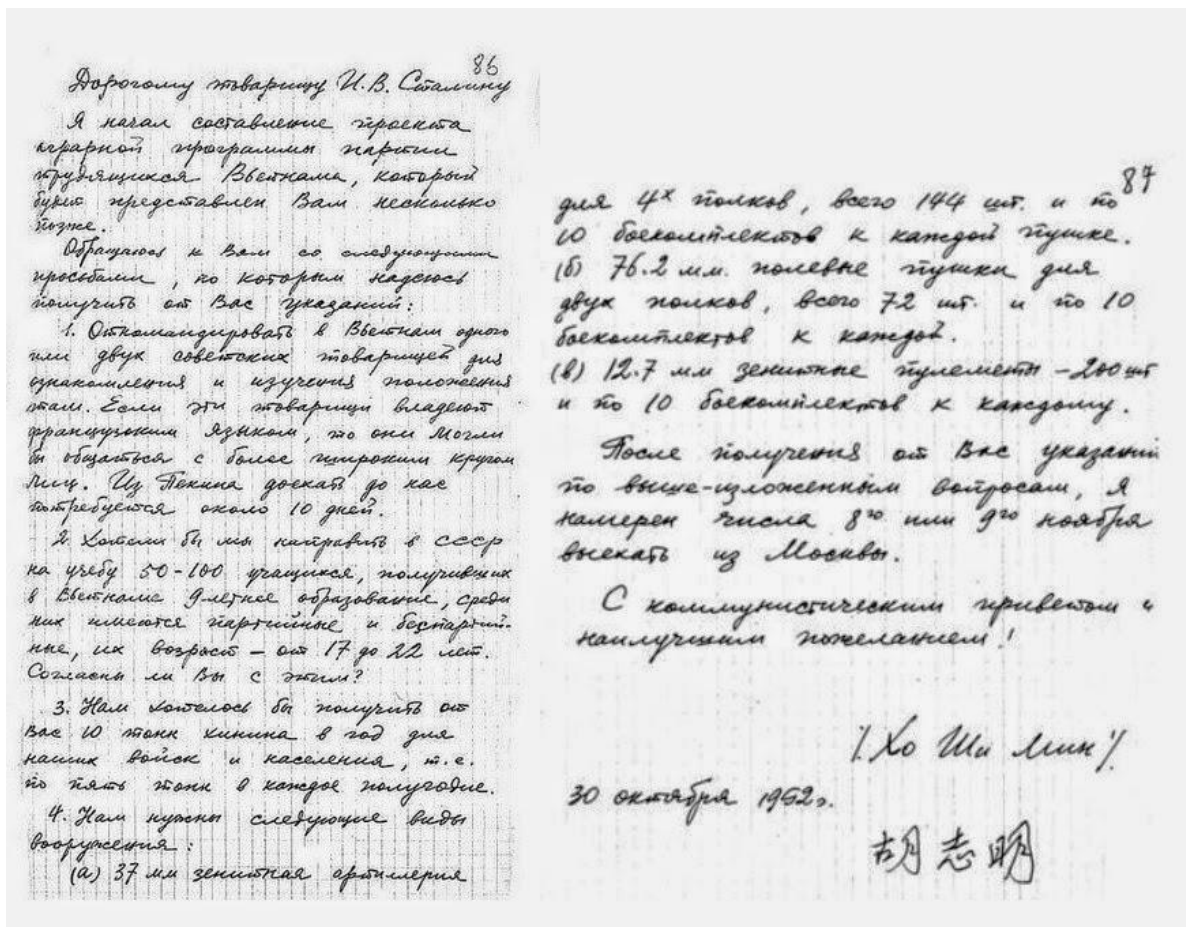 86
Дорогому товарищу И.В. Сталину
Я начал составление проекта
аграрной программы партии
трудящихся Вьетнама, который
будет представлен Вам несколько
позже.
Обращаюсь к Вам со следующими
просьбами, по которым надеюсь
получить от Вас указаний:
1. Откомандировать в Вьетнам одного
или двух советских товарищей для
ознакомления и изучения положения
там. Если эти товарищи владеют
французским языком, то они могли
бы общаться с более широким кругом
лиц. Из Пекина доехать до нас
потребуется около 10 дней.
2. Хотели бы мы направить в СССР
на учебу 50-100 учащихся, получивших
в Вьетнаме 9летнее образование, среди
них имеются партийные и беспартий-
ные, их возраст – от 17 до 22 лет.
Согласны ли Вы с этим?
3. Нам хотелось бы получить от
Вас 10 тонн хинина в год для
наших войск и населения, т.е.
по пять тонн в каждое полугодие.
4. Нам нужны следующие виды
вооружения:
(а) 37 мм зенитная артиллерия
87
для 4х полков, всего 144 шт. и по
10 боекомплектов к каждой пушке.
(б) 76.2 мм. полевые пушки для
двух полков, всего 72 шт. и по 10
боекомплектов к каждой.
(в) 12.7 мм зенитные пулеметы – 200 шт
и по 10 боекомплектов к каждому.
После получения от Вас указаний
по выше-изложенным вопросам, я
намерен числа 8го или 9го ноября
выехать из Москвы.
С коммунистическим приветом и
наилучшим пожеланием!
/Хо Ши Мин/
30 октября 1952г.
胡志明